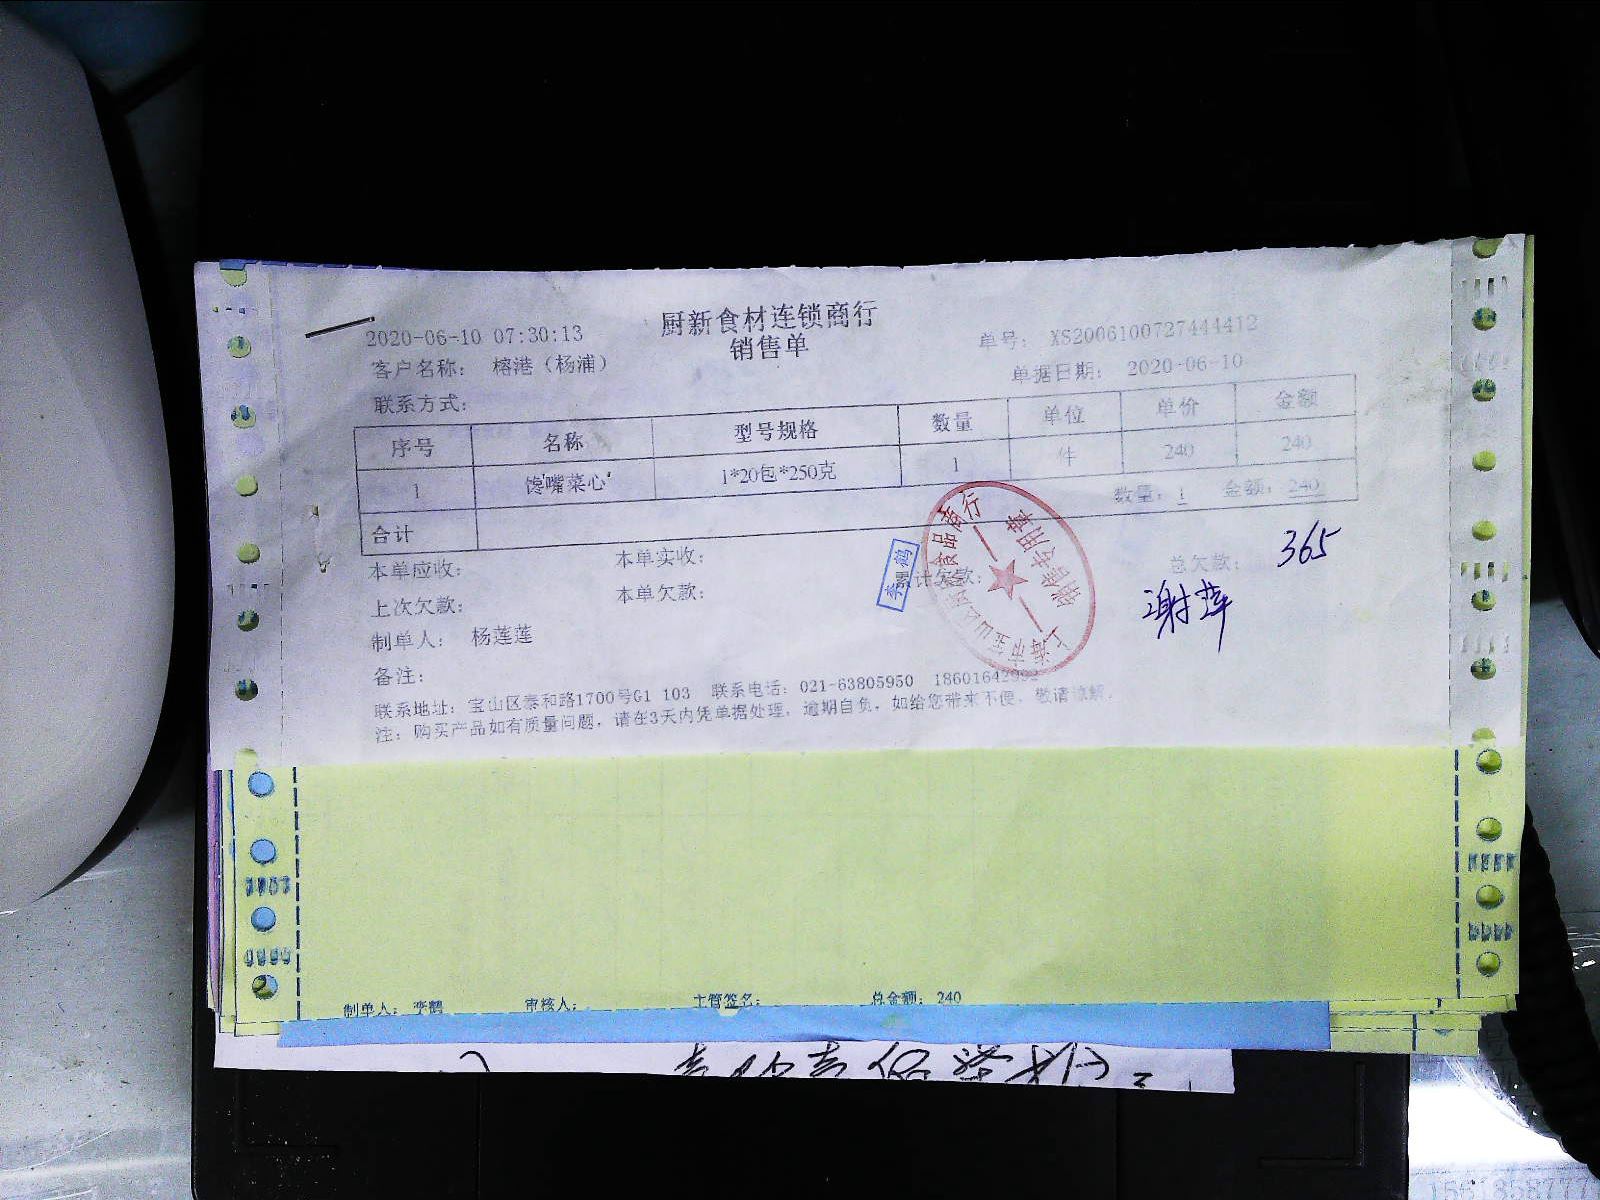 厨新食材连锁商行
销售单
2020-06-10 07:30:13
单号： XS2006100727444412
客户名称： 榕港（杨浦）
单据日期： 2020-06-10
联系方式：
序号 名称 型号规格 数量 单位 单价 金额
1 馋嘴菜心 1*20包*250克 1 件 240 240
合计 数量：1 金额：240
365
本单应收： 本单实收： 计欠款： 总欠款：
上次欠款： 本单欠款：
制单人： 杨莲莲
备注：
联系地址：宝山区泰和路1700号G1 103 联系电话：021-63805950
注：购买产品如有质量问题，请在3天内凭单据处理，逾期自负，如给您带来不便，敬请谅解。
制单人： 李鹤 审核人： 主管签名： 总金额：240